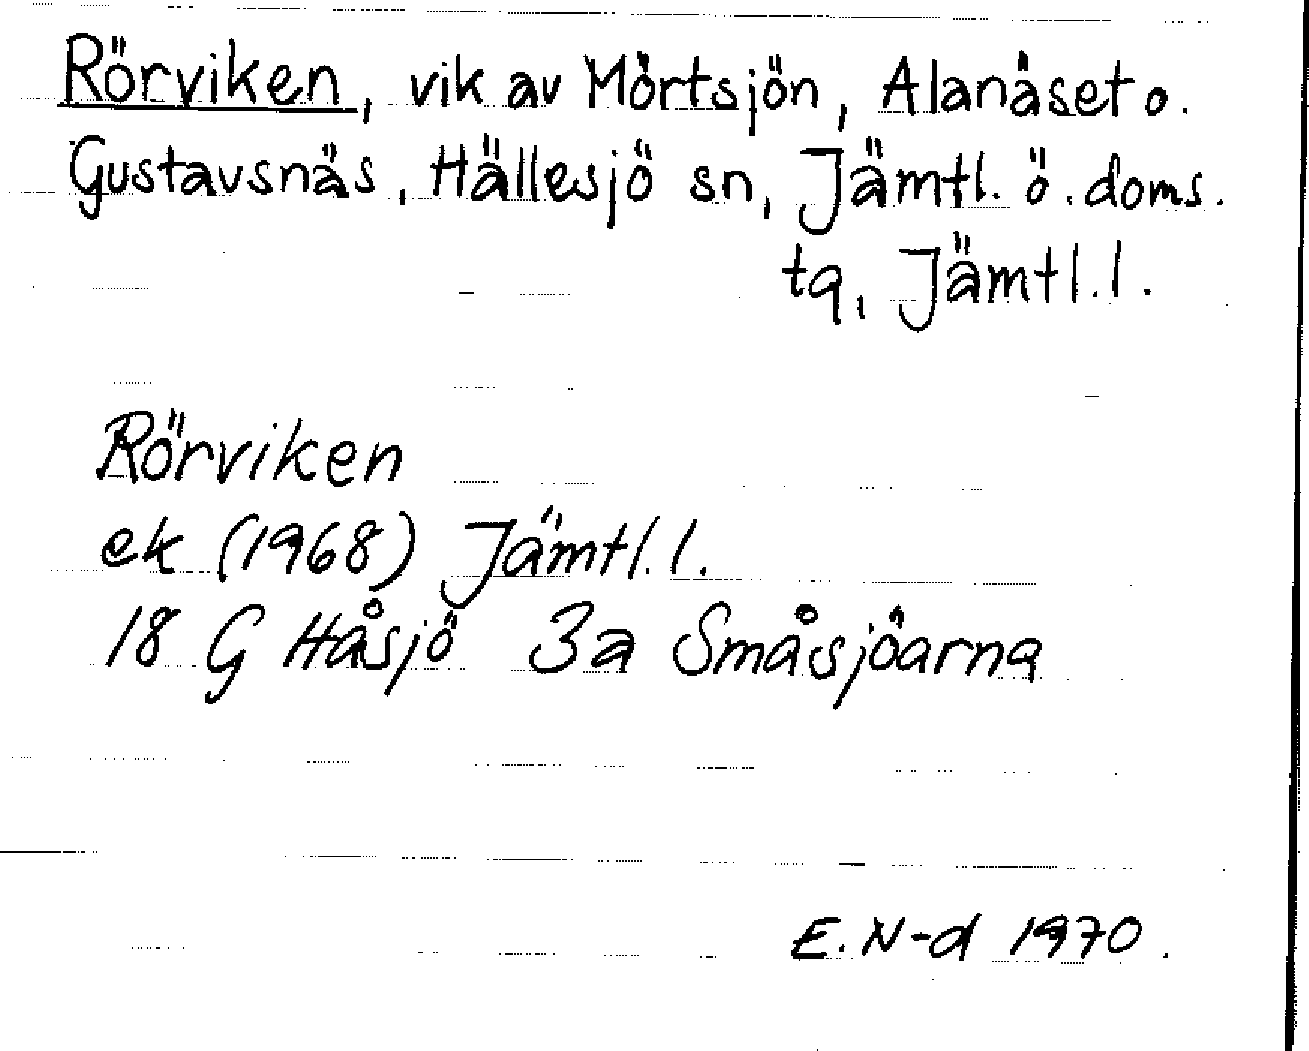 Rörviken, vik av Mörtsjön, Alanäset o.
Gustavsnäs, Hällesjö sn, Jämtl. ö. doms.
tq, Jämtl. l.
Rörviken
ek (1968) Jämtl. l.
18 G Håsjö 3a Småsjöarna
E. N-d 1970.